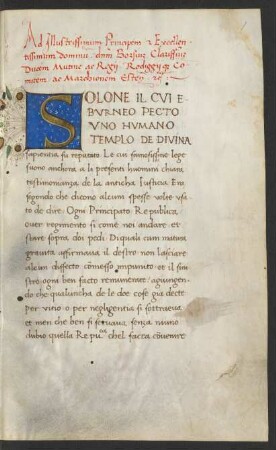 Ad Illustrissimum Principem & Excellen
tissimum Dominū dnm̄ Borsium Clarissimū
Ducem Mutine ac Regij Rodigijq; Co
mitem ac Marchionem Esten
SOLONE IL CVI E
BVRNEO PECTO
VNO HVMANO
TEMPLO DE DIVINA
sapientia fu reputato Le cui sanctissime lege
sono anchora a li presenti huomini chiara
testimonanza de la anticha Iusticia Era
segondo che dicono alcuni spesse volte vsa
to de dire Ogni Principato Republica
ouer regimento si come noi andare et
stare sopra doi pedi Di quali cum matura
grauita affirmaua il destro non lasciare
alcun diffecto comesso impunito et il sini
stro ogni ben facto remunerare agiungen
do che qualuncha de le doe cose gia decte
per vitio o per negligentia si sottraeua
et men che ben si seruaua senza niuno
dubio quella Repu.ca chel faceа conuenire